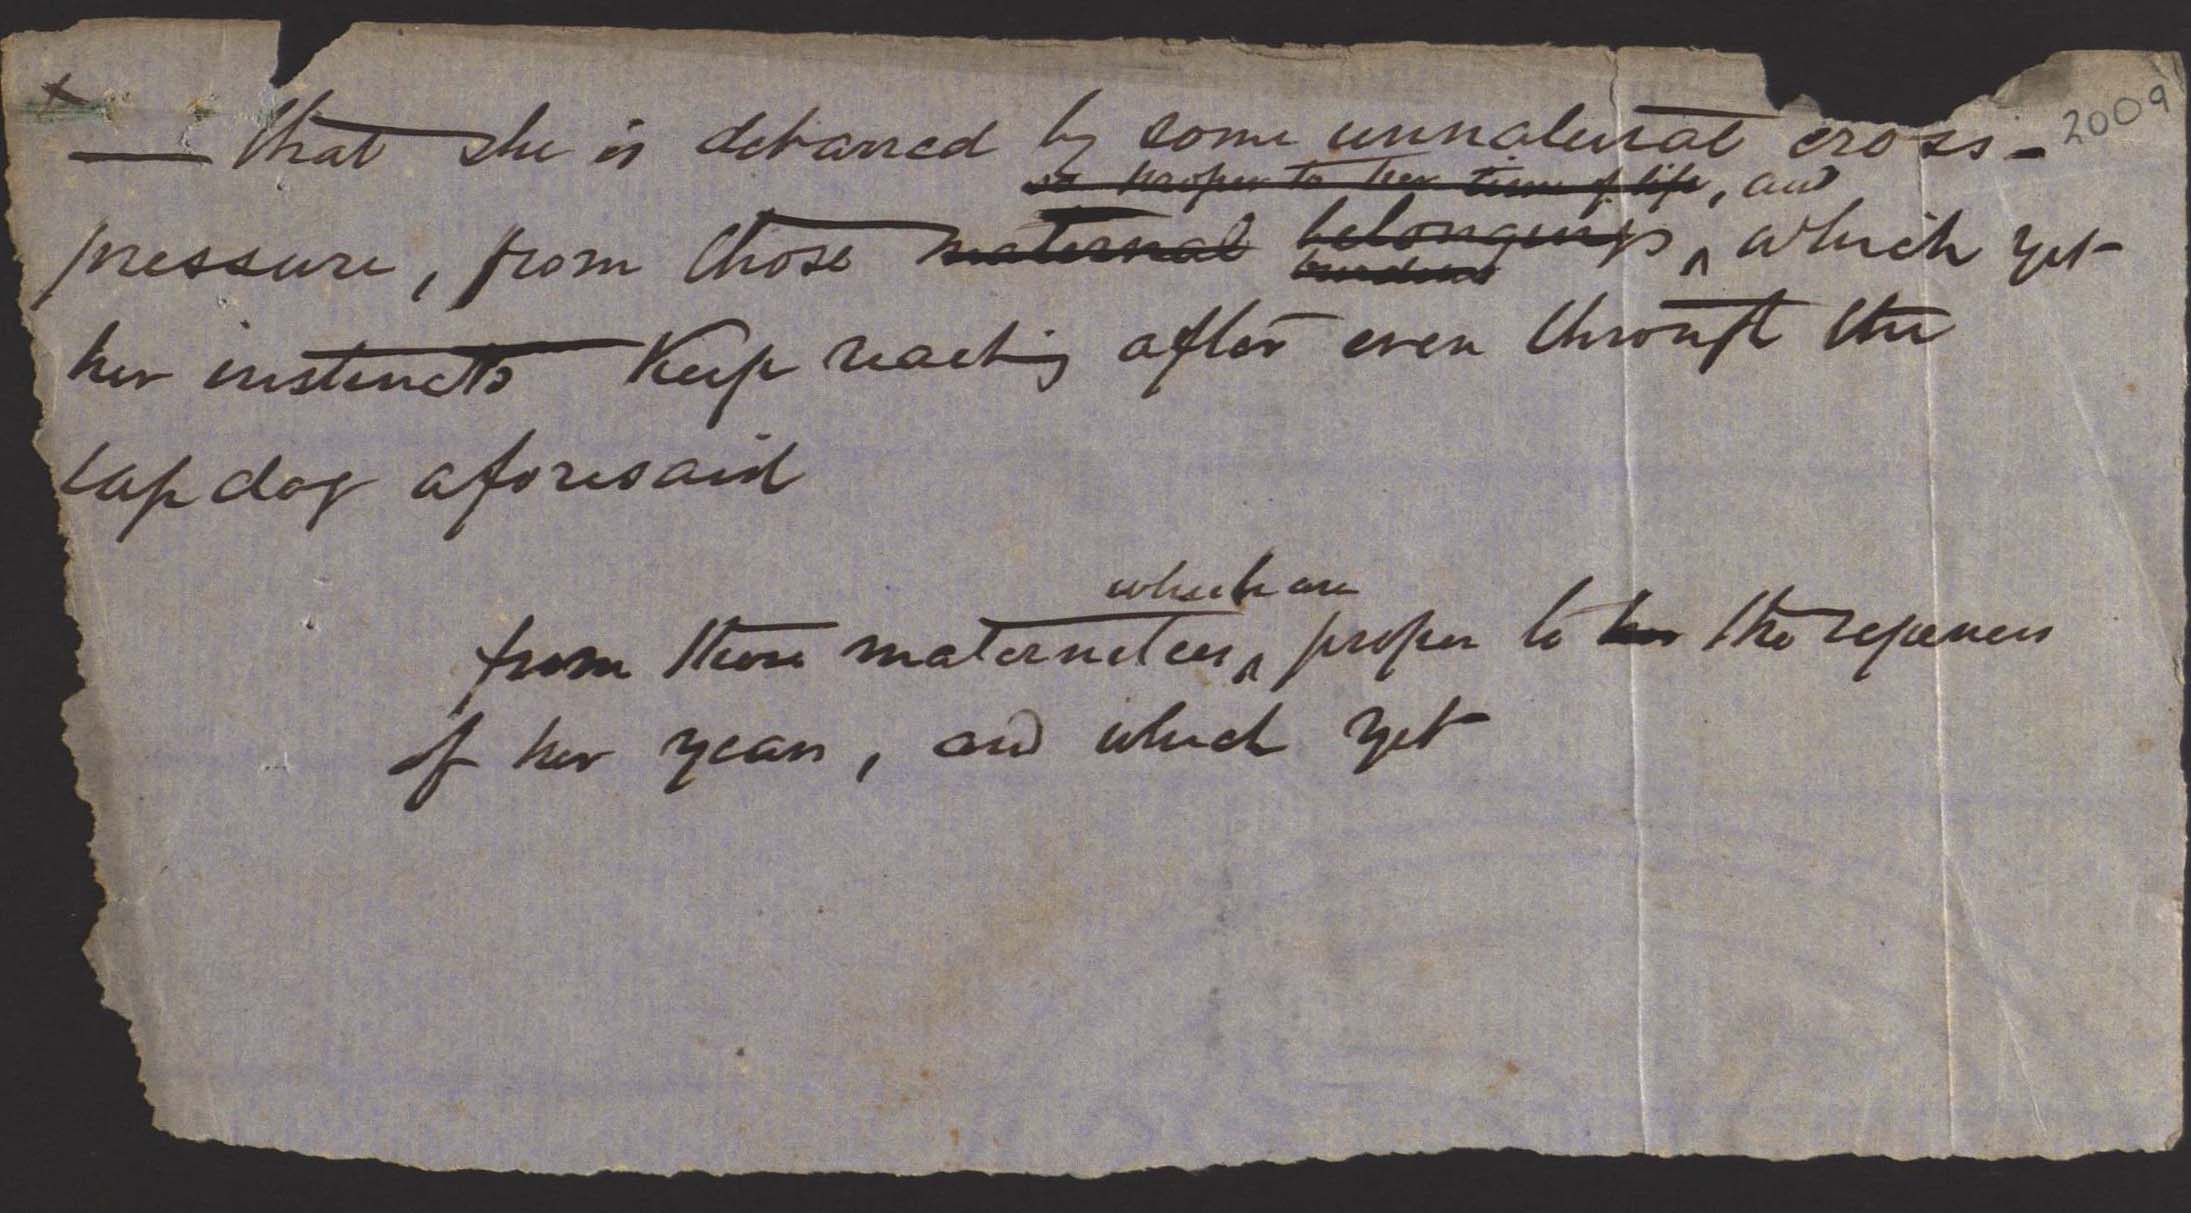 x
2009
— that she is debarred by some unnatural cross-
so proper to her time of life, and
pressure, from those maternal belongings ^ which yet
burdens
her instincts keep reaching after even through the
lap dog aforesaid
which are
from those maternities ^ proper to her the ripeness
of her years, and which yet